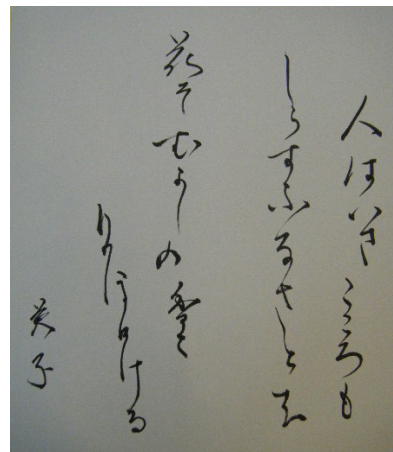 人はいさこゝろも
しらすふるさとは
花そむかしの香
ににほひける
英子